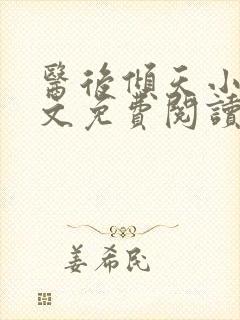 醫後傾天小
文免費閱讀
姜希民